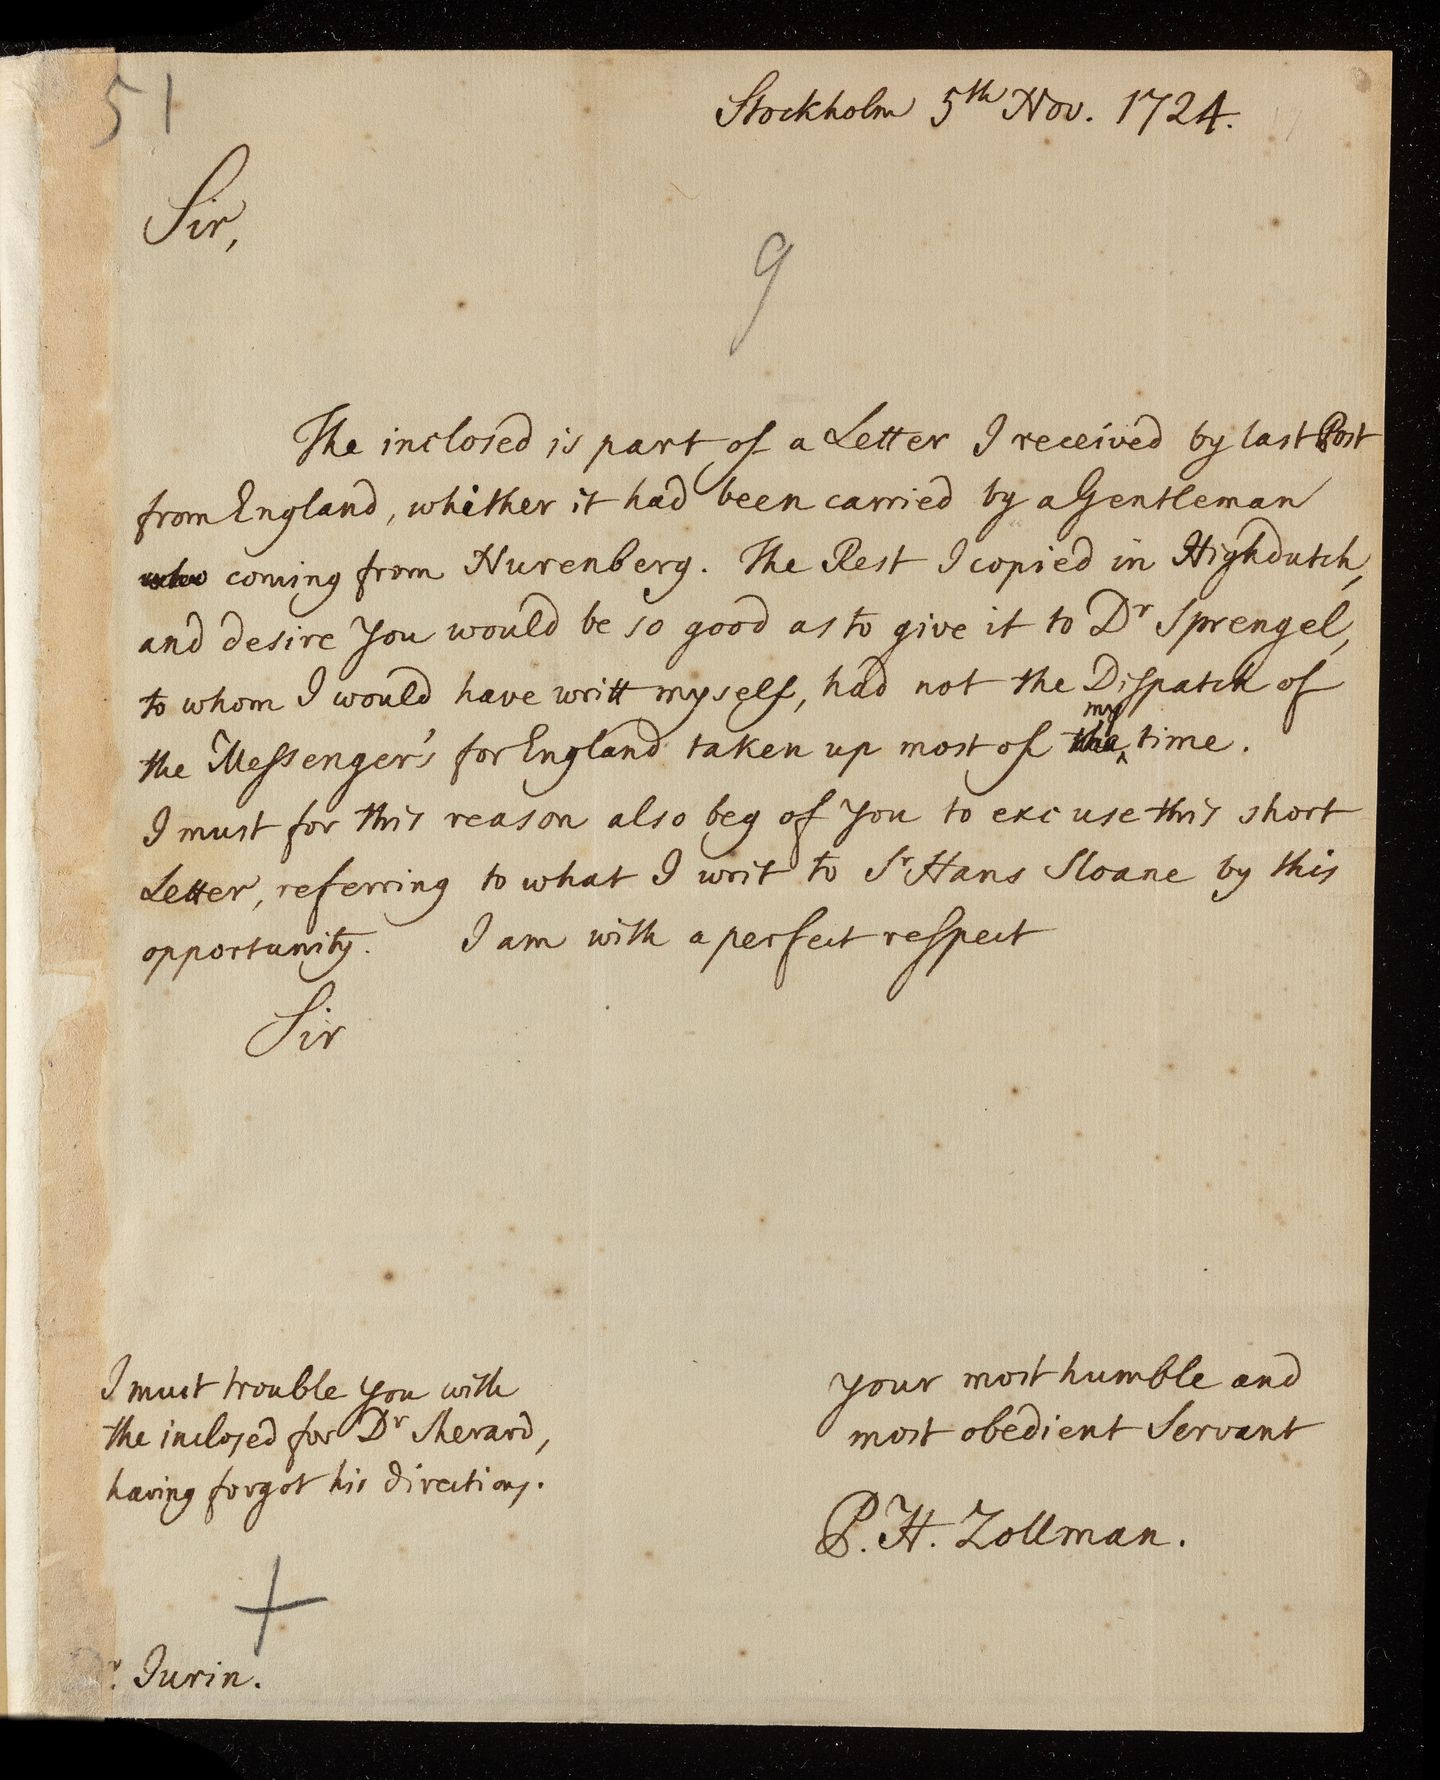 51
Stockholm 5th Nov. 1724.
Sir,
9
The inclosed is part of a Letter I received by last Post
from England, whither it had been carried by a Gentleman
who coming from Nurenberg. The Rest I copied in Highdutch,
and desire You would be so good as to give it to Dr Sprengel,
to whom I would have writt myself, had not the Dispatch of
the Messenger's for England taken up most of the my time.
I must for this reason also beg of You to excuse this short
Letter, referring to what I writ to Sr Hans Sloane by this
opportunity. I am with a perfect respect
Sir
your most humble and
most obedient Servant
P. H. Zollman.
I must trouble you with
the inclosed for Dr Sherard,
having forgot his directions.
r. Jurin.